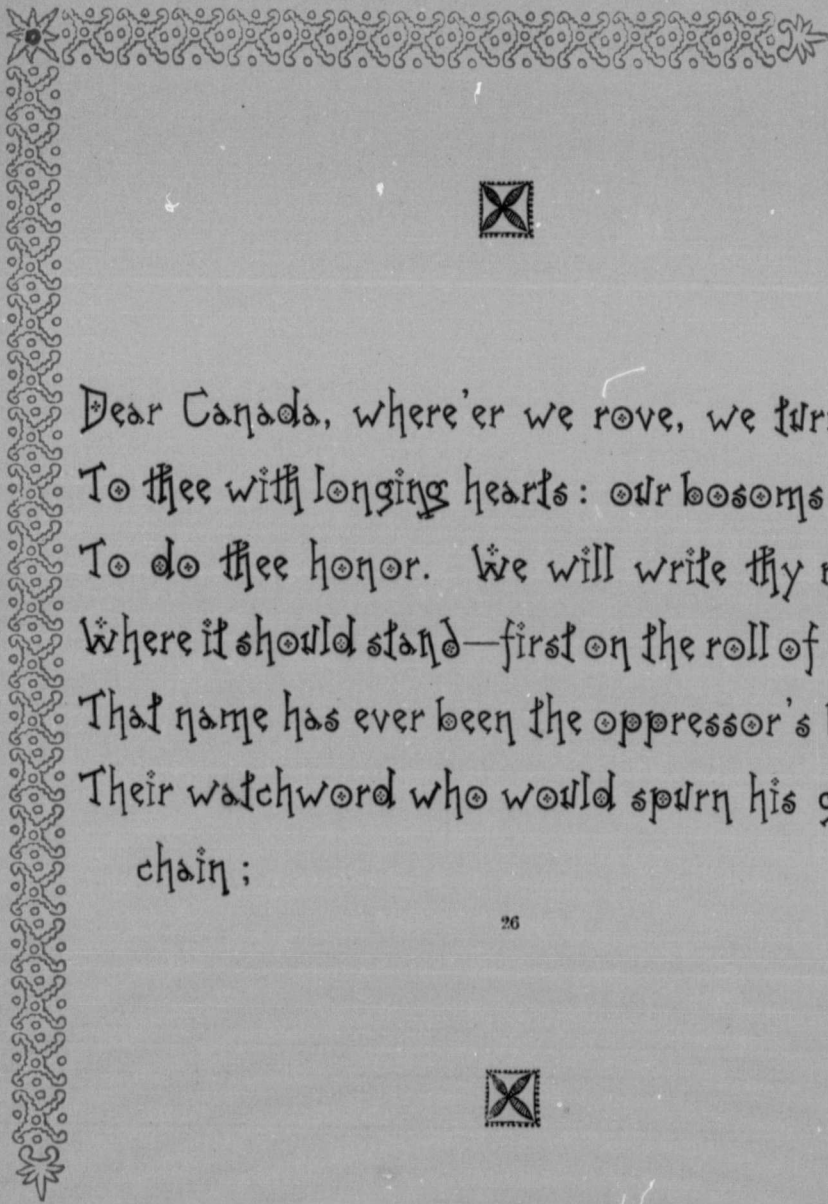 Dear Canada, where'er we rove, we
To thee with longing hearts: our bosoms
To do thee honor. We will write thy
Where it should stand—first on the roll of
That name has ever been the oppressor's
Their watchword who would spurn his
chain;
26